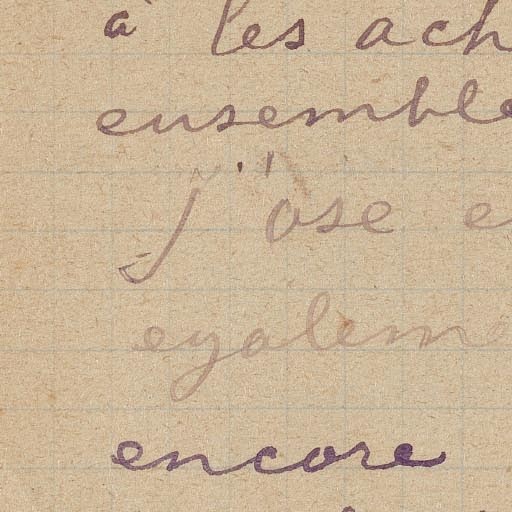 à les ach
ensemble
j'ose e
egalem
encore